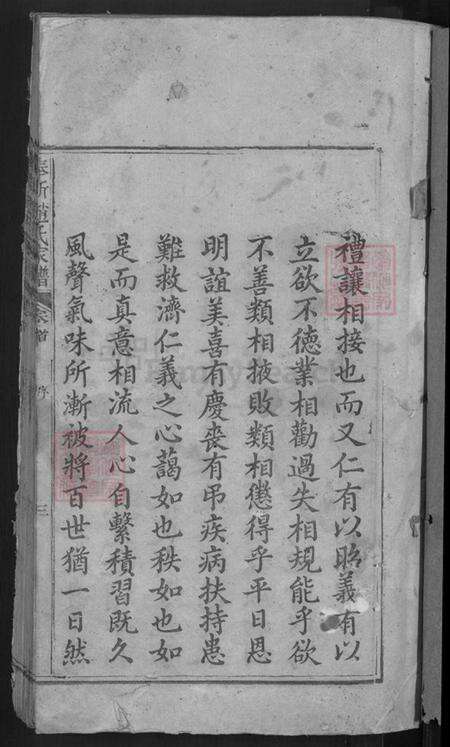 禮讓相接也而又仁有以昭義有以
立欲不德業相勸過失相規能乎欲
不善類相掖敗類相懲得乎平日恩
明誼美喜有慶喪有吊疾病扶持患
難救濟仁義之心藹如也秩如也如
是而真意相流人心自繫積習既久
風聲氣味所漸被將百世猶一日然
趙氏家譜 卷首 序 三
FamilySearch